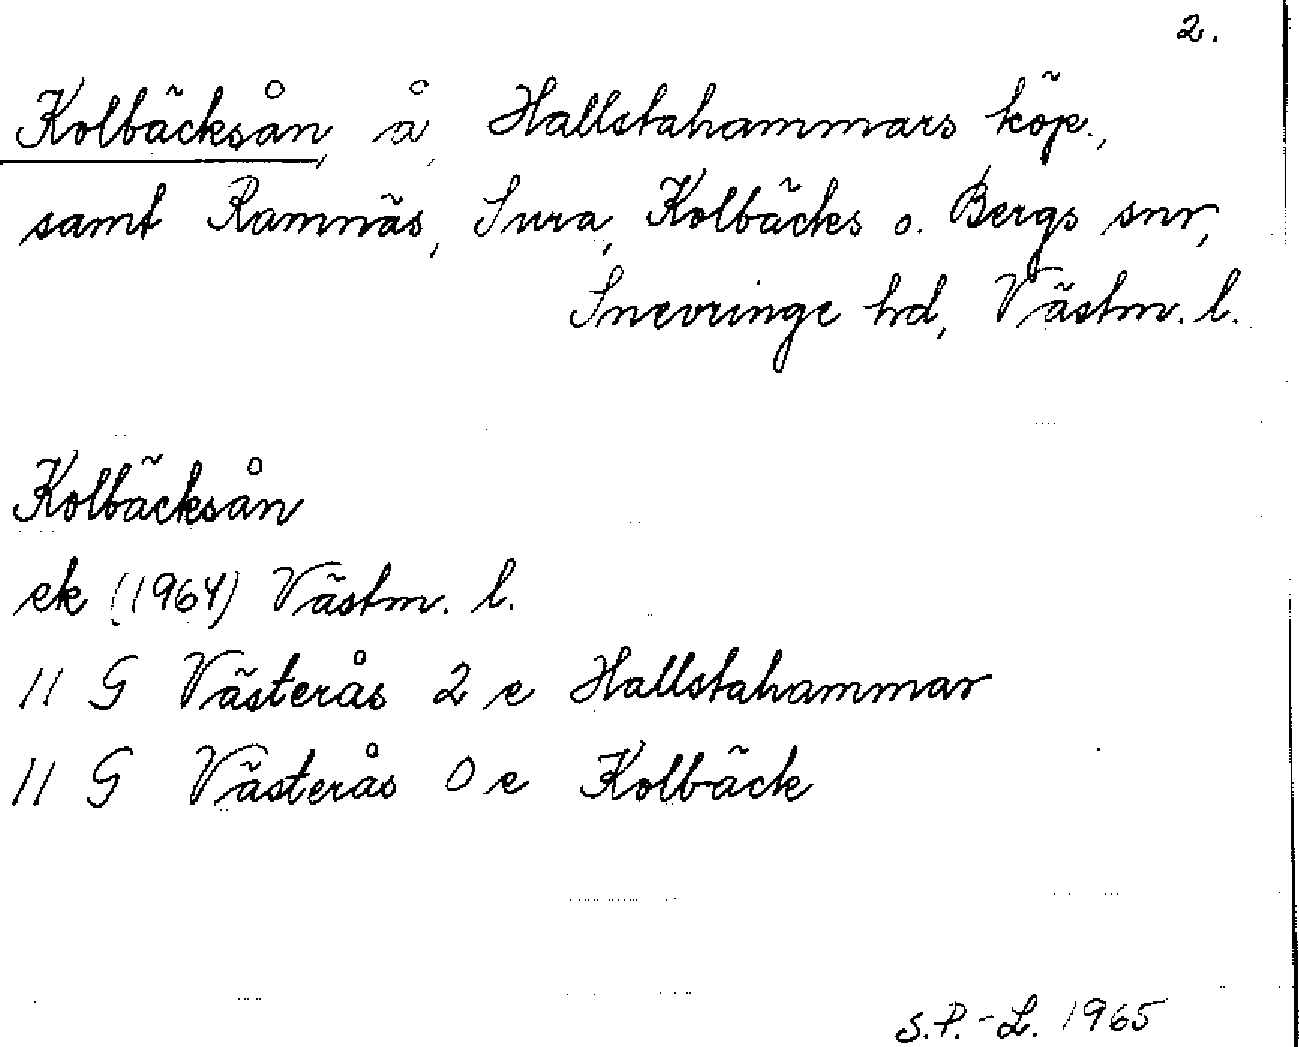 2.
Kolbäcksån, å, Hallstahammars köp.,
samt Ramnäs, Sura, Kolbäcks o. Bergs snr,
Snevringe hd, Västm. l.
Kolbäcksån
ek (1964) Västm. l.
11 G Västerås 2 e Hallstahammar
11 G Västerås 0 e Kolbäck
S.P.-L. 1965